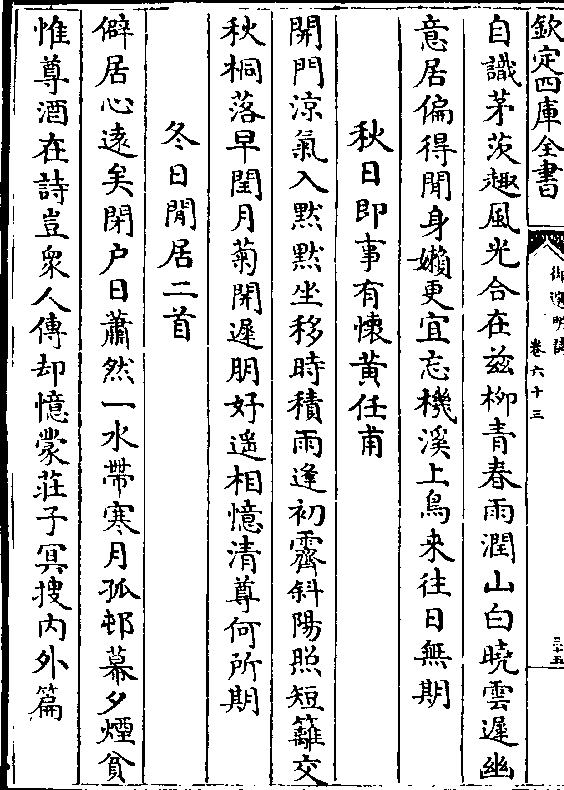 欽定四庫全書
御選明詩
卷六十三
三十五
自識茅茨趣風光合在兹柳青春雨潤山白曉雲遲幽
意居偏得閒身嬾更宜忘機溪上鳥来往日無期
秋日即事有懷黄任甫
開門涼氣入黙黙坐移時積雨逢初霽斜陽照短籬交
秋桐落早閏月菊開遲朋好遥相憶清尊何所期
冬日閒居二首
僻居心遠矣閉户日蕭然一水帶寒月孤邨幕夕煙貧
惟尊酒在詩豈衆人傳却憶蒙莊子冥搜内外篇